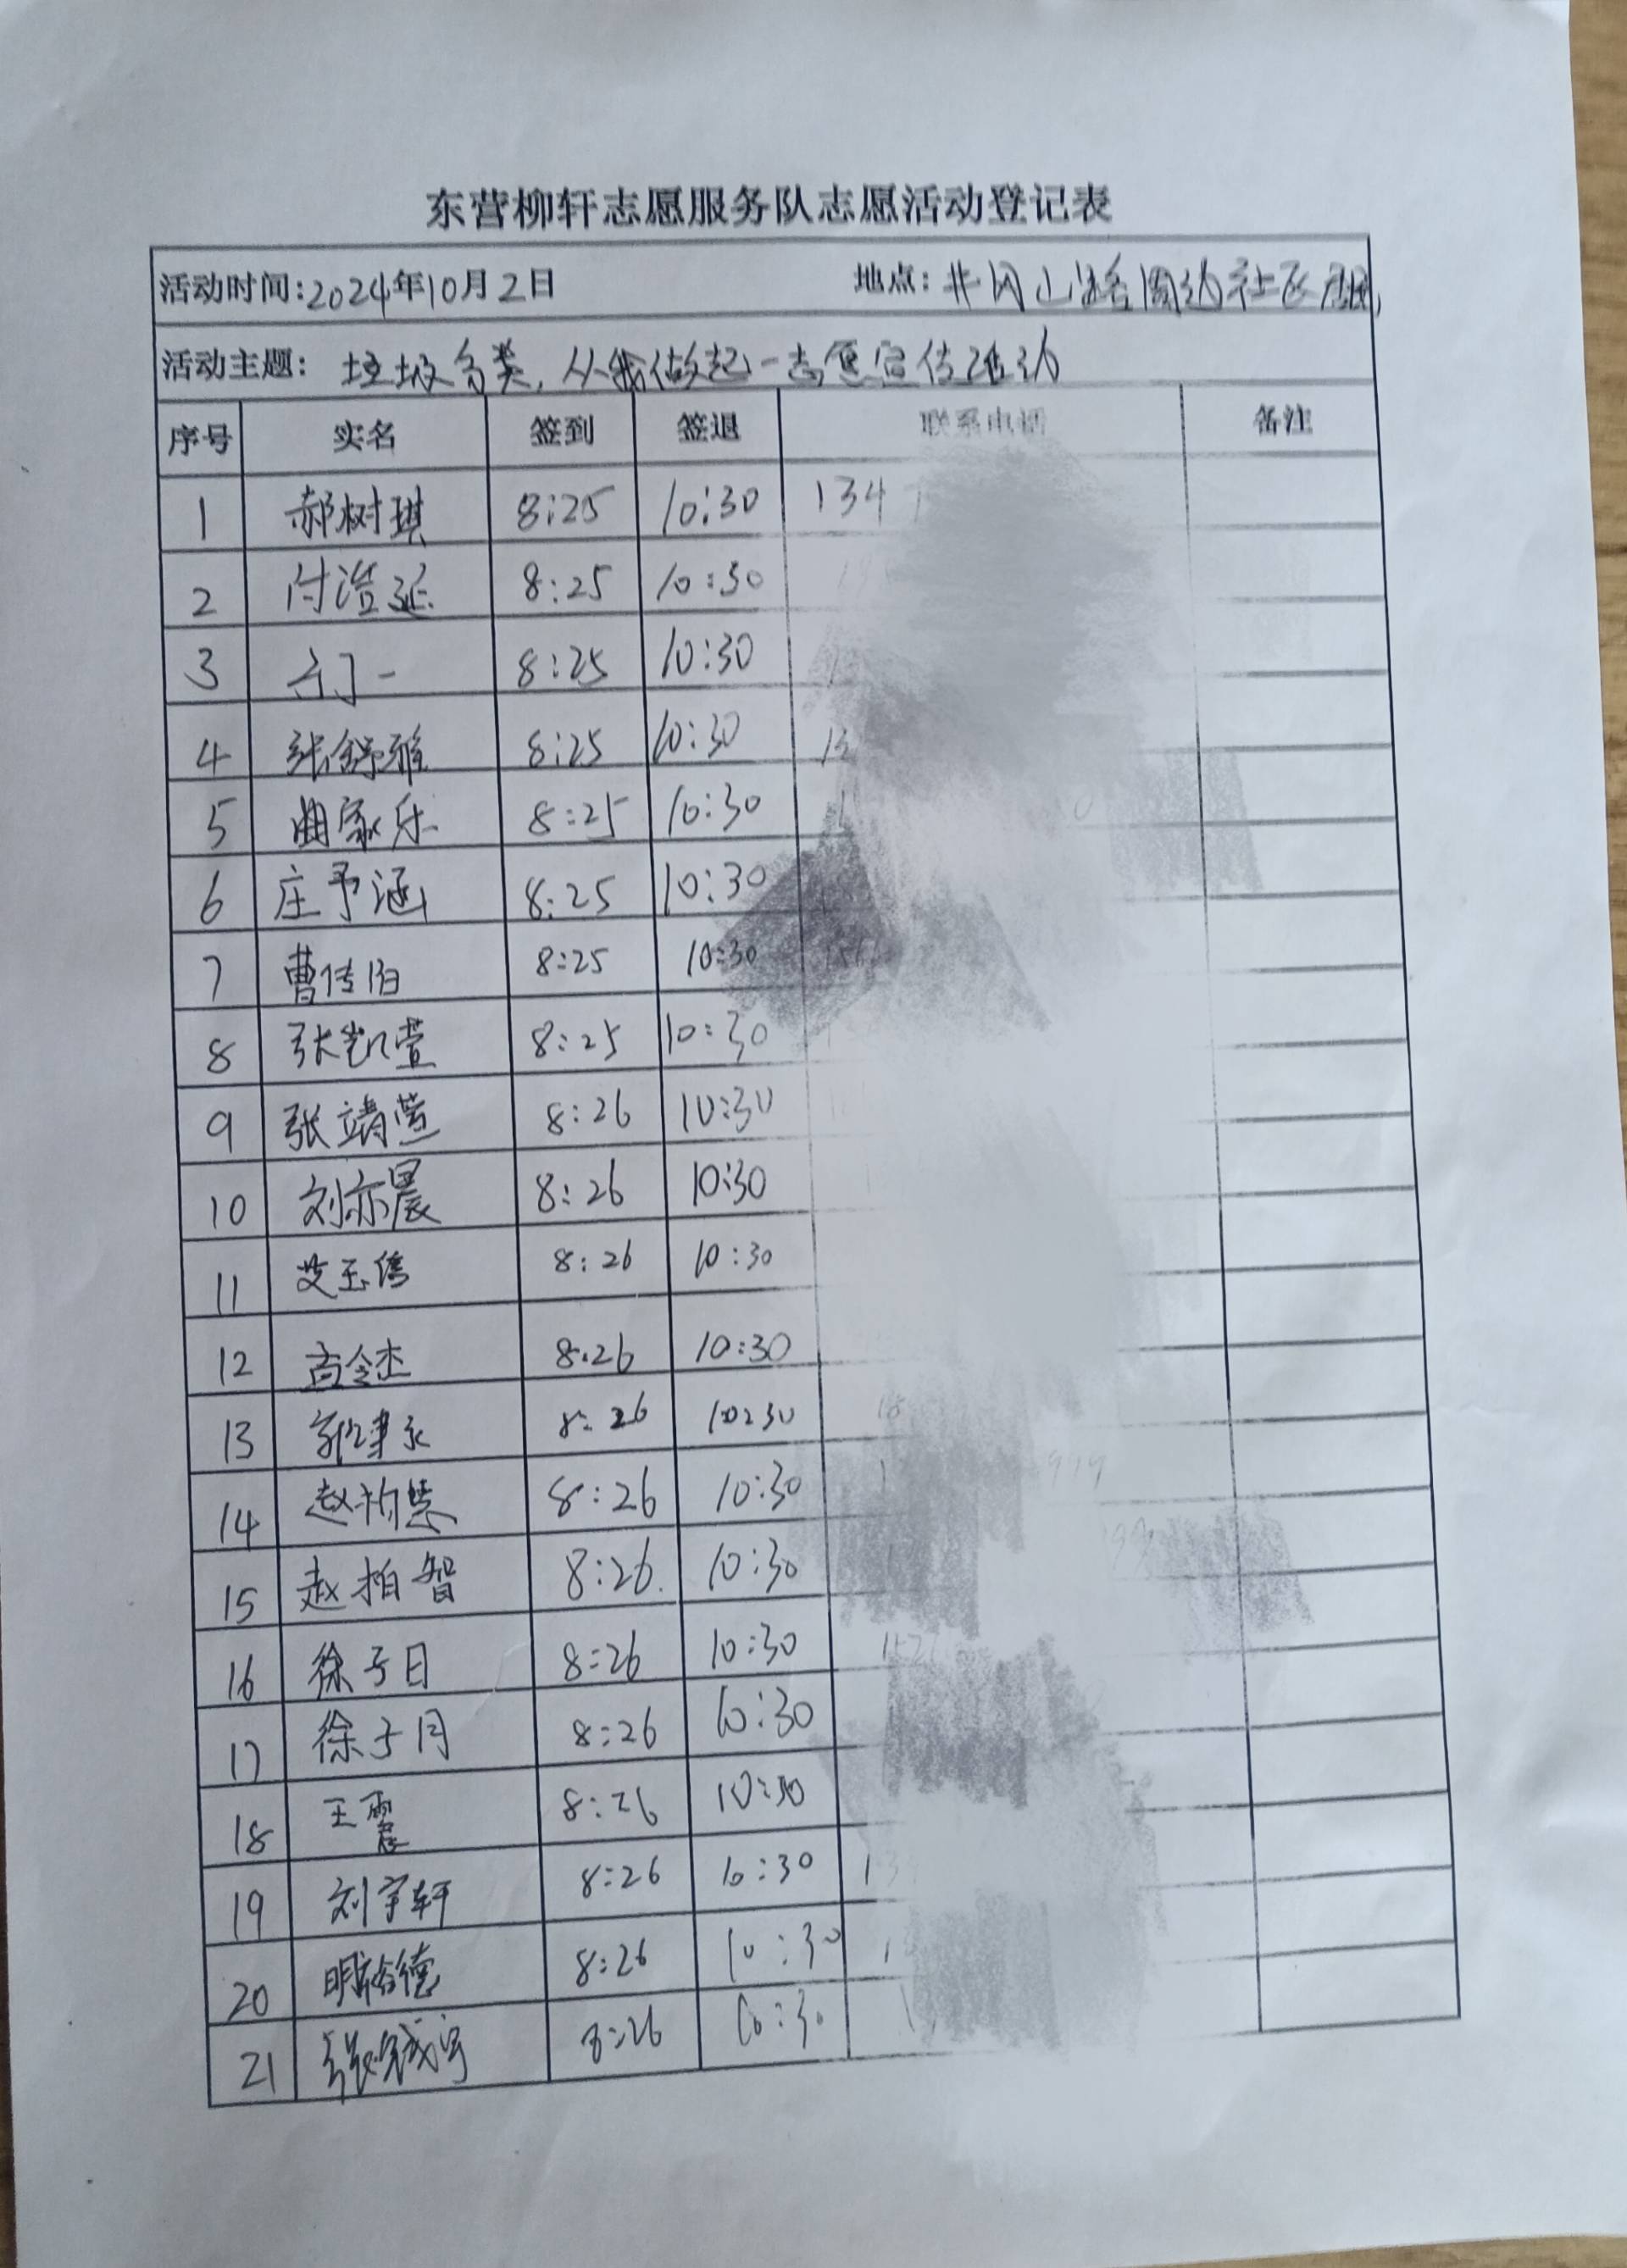 东营柳轩志愿服务队志愿活动登记表
活动时间:2024年10月2日 地点:井冈山路周边社区
活动主题: 垃圾分类,从我做起-志愿宣传活动
序号 实名 签到 签退 联系电话 备注
1 郝树琪 8:25 10:30 134
2 付浩延 8:25 10:30
3 8:25 10:30
4 张舒雅 8:25 10:30
5 曲家乐 8:25 10:30
6 庄予涵 8:25 10:30
7 曹传 8:25 10:30
8 张凯萱 8:25 10:30
9 张靖萱 8:26 10:30
10 刘亦晨 8:26 10:30
11 艾玉 8:26 10:30
12 8:26 10:30
13 8:26 10:30
14 赵柏慧 8:26 10:30
15 赵柏智 8:26 10:30
16 徐子日 8:26 10:30
17 徐子月 8:26 10:30
18 王震 8:26 10:30
19 刘宇轩 8:26 10:30
20 明裕德 8:26 10:30
21 8:26 10:30